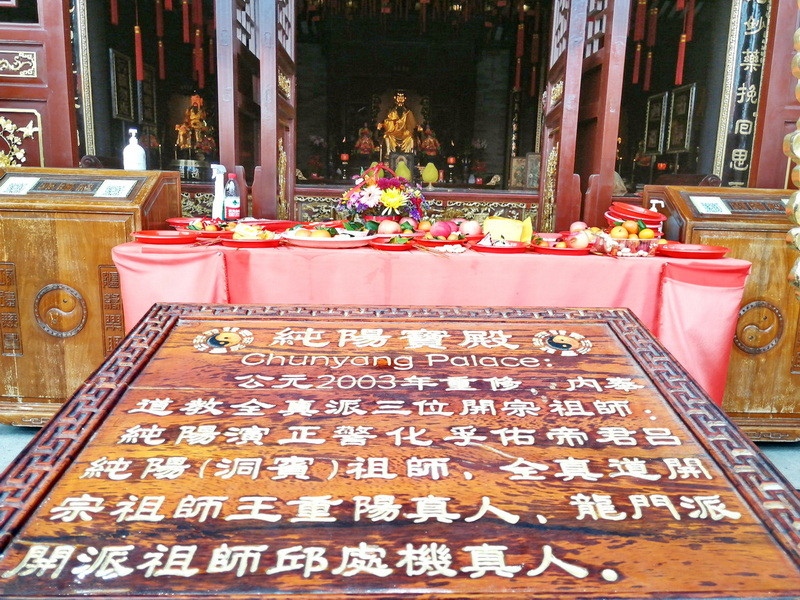 純陽寶殿
Chunyang Palace:
公元2003年重修，内奉
道教全真派三位開宗祖師：
純陽演正警化孚佑帝君吕
純陽(洞賓)祖師、全真道開
宗祖師王重陽真人、龍門派
開派祖師邱處機真人.